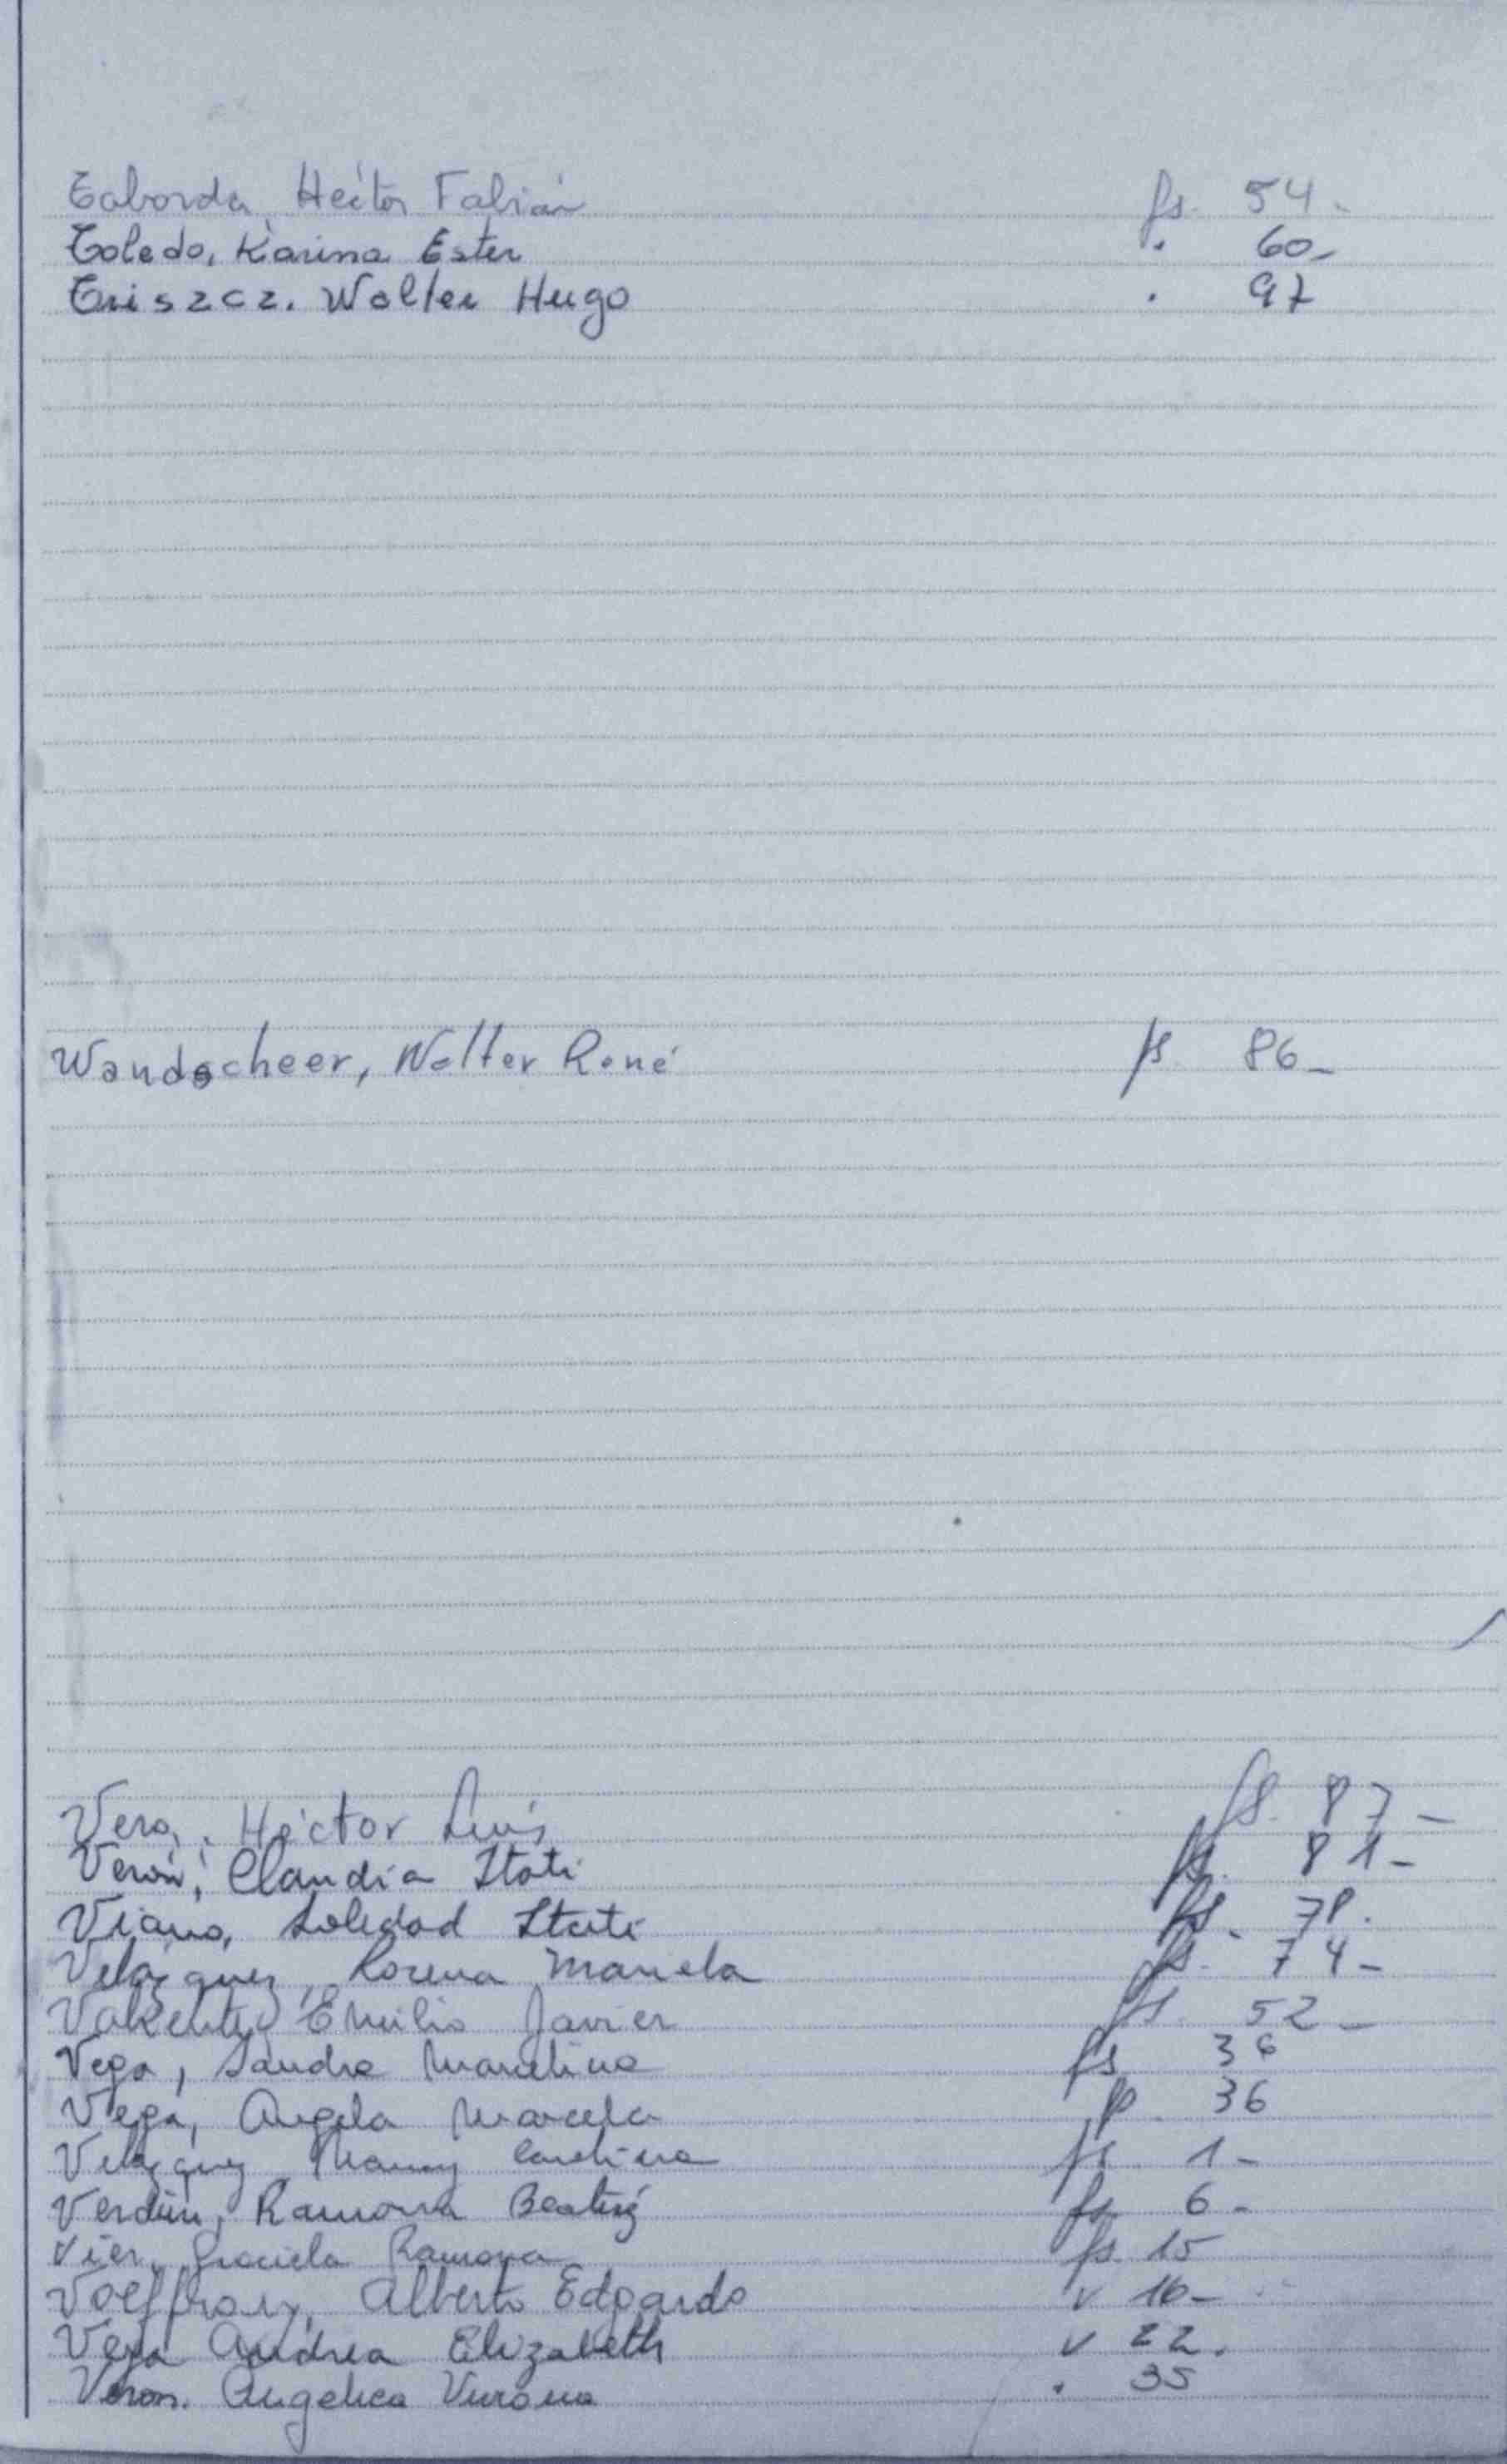 Taborda, Héctor Fabián fs. 54-
Toledo, Karina Ester . 60-
Triszcz. Walter Hugo . 97
Wandscheer, Walter René fs. 86-
Vera, Héctor Luis fs. 87-
Verón, Claudia Itati fs. 81-
Viana, Soledad Itati fs. 78.
Velázquez, Rosena Mariela fs. 74-
Valiente, Emilio Javier fs. 52-
Vega, Sandra Marcelina fs 36
Vega, Angela Marcela fs. 36
Velázquez Nancy Carolina fs 1-
Verdún, Ramona Beatriz fs. 6-
Vier, Graciela Ramona fs. 15
Voeffray, Alberto Edgardo v 16-
Vega Andrea Elizabeth v 22.
Veron. Angelica . 35